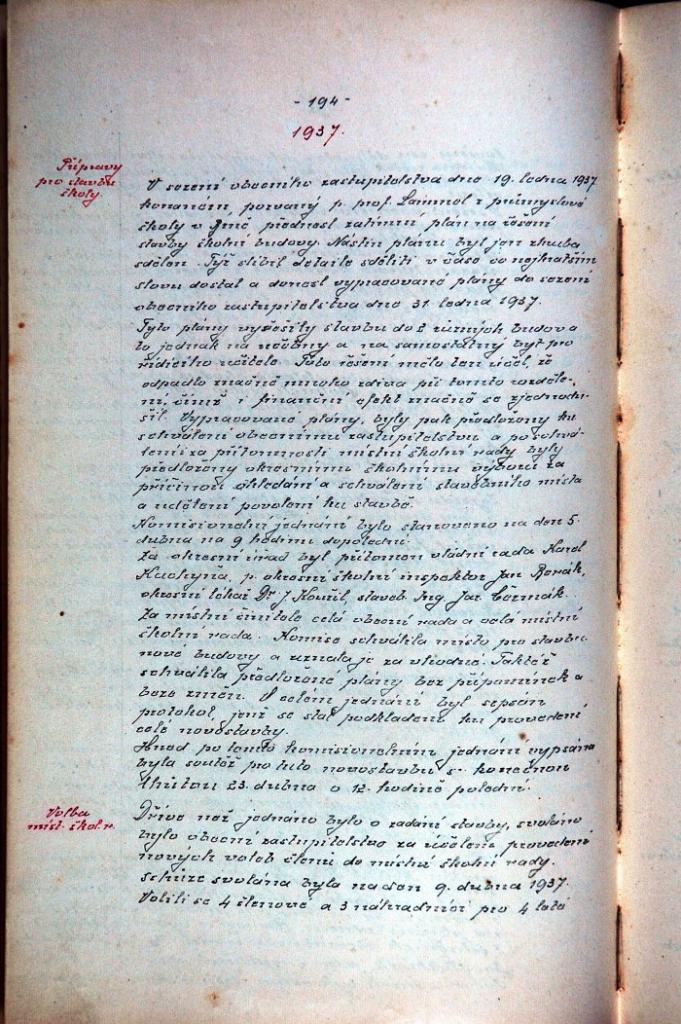 - 194 -
1937.
Přípravy
pro stavbu
školy.
V sezení obecního zastupitelstva dne 19. ledna 1937
konaném, pozvaný p. prof. z průmyslové
školy v Brně, přednesl zatímní plán na řešení
stavby školní budovy. Nástin plánu byl jen zhruba
sdělen. Týž slíbil detaile sděliti v čase co nejkratším
slovu dostal a donesl vypracované plány do sezení
obecního zastupitelstva dne 31. ledna 1937.
Tyto plány vyřešily stavbu do 2 různých budov a
to jednak na učebny a na samostatný byt pro
řídícího učitele. Toto řešení mělo ten účel, že
odpadlo značně mnoho zdiva při tomto rozděle-
ní, čímž i finanční efekt značně se zjednodu-
šil. Vypracované plány, byly pak předloženy ku
schválení obecnímu zastupitelstvu a po schvá-
lení za přítomnosti místní školní rady byly
předloženy okresnímu školnímu výboru za
příčinou ohledání a schválení stavebního místa
a udělení povolení ku stavbě.
Komisionelní jednání bylo stanoveno na den 5.
dubna na 9 hodinu dopolední.
Za okresní úřad byl přítomen vládní rada Karel
Kuchyňa, p. okresní školní inspektor Jan
okresní lékař Dr. J. Kouřil, staveb. Ing. Jar. Čermák.
Za místní činitele celá obecní rada a celá místní
školní rada. Komise schválila místo pro stavbu
nové budovy a uznala je za vhodné. Taktéž
schválila předložené plány bez připomínek a
beze změn. O celém jednání byl sepsán
protokol, jenž se stal podkladem ku provedení
celé novostavby.
Hned po tomto komisionelním jednání vypsána
byla soutěž pro tuto novostavbu s konečnou
lhůtou 23. dubna o 12. hodině polední.
Volba
míst. škol. r.
Dříve než jednáno bylo o zadání stavby, svoláno
bylo obecní zastupitelstvo za účelem provedení
nových voleb členů do místní školní rady.
Schůze svolána byla na den 9. dubna 1937.
Volili se 4 členové a 3 náhradníci pro 4 leté